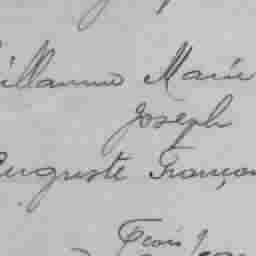 Guillaume Marie
Joseph
Auguste Françoi
Frois